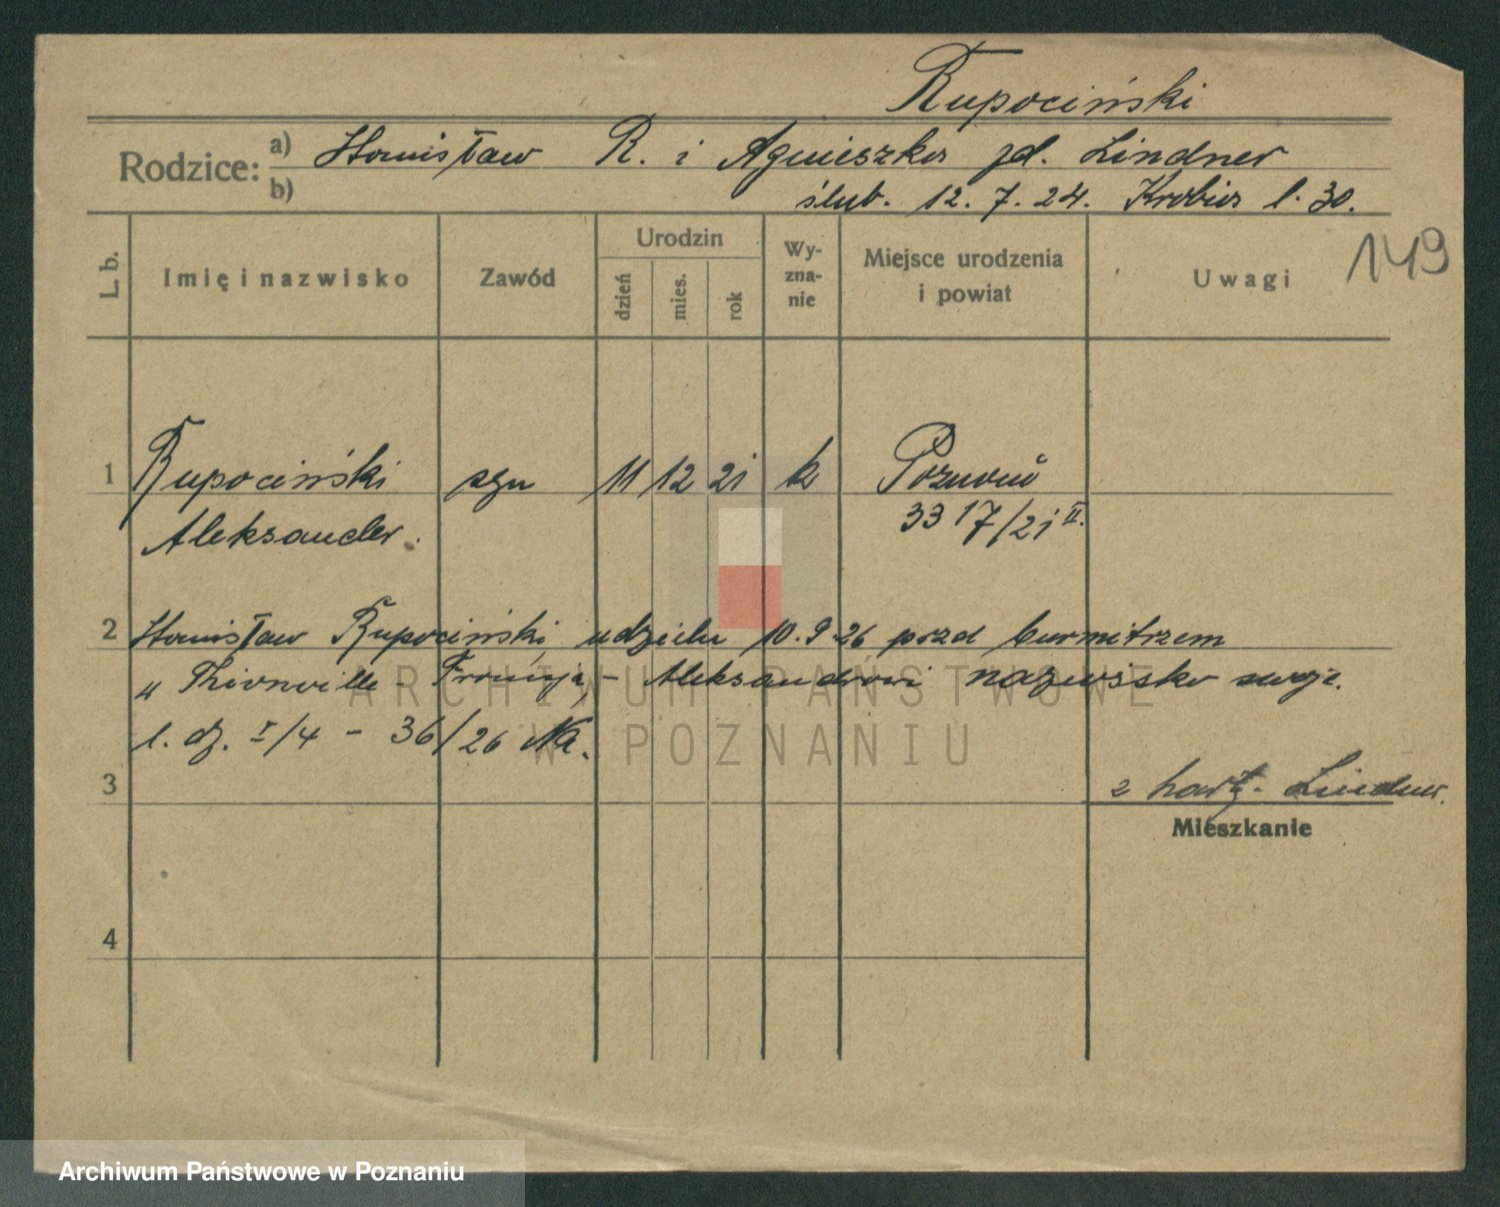 Rupociński
Rodzice: a) Stanisław R. i Agnieszka zd. Lindner
b) ślub. 12. 7. 24. Krobia l. 30.
149
L. b.
Imię i nazwisko
Zawód
Urodzin
dzień
mies.
rok
Wy-
zna-
nie
Miejsce urodzenia
i powiat
Uwagi
1 Rupociński syn 11 12 21 k Poznań
Aleksander. 3317/21 II.
2 Stanisław Rupociński, udziela 10. 9. 26 przed burmistrzem
w Thionville - Francja, - Aleksandrowi nazwisko swoje.
l. dz. I/4 - 36/26 Na.
3
z kart. Lindner.
Mieszkanie
4
ARCHIWUM PAŃSTWOWE
W POZNANIU
Archiwum Państwowe w Poznaniu